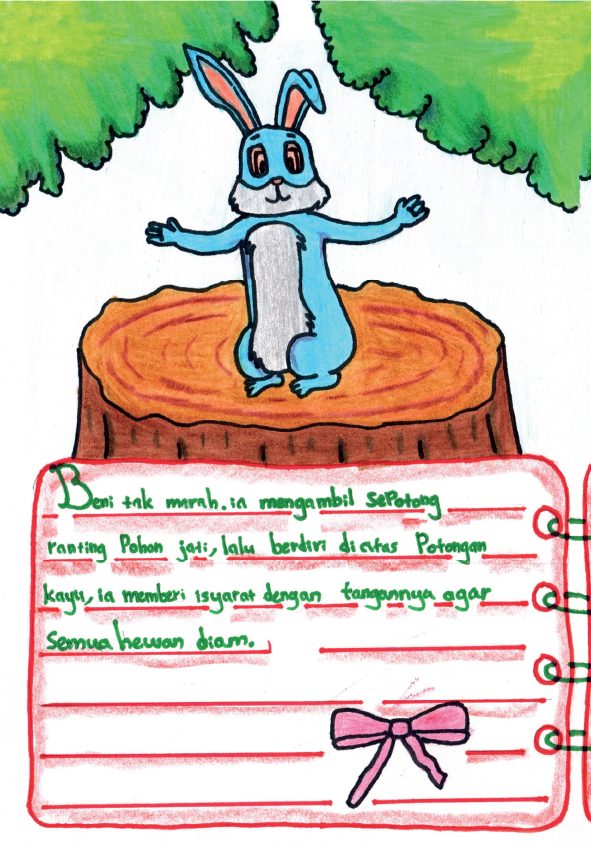 Beni tak marah. ia mengambil sepotong
ranting Pohon jati, lalu berdiri diatas Potongan
kayu, ia memberi isyarat dengan tangannya agar
Semua hewan diam.